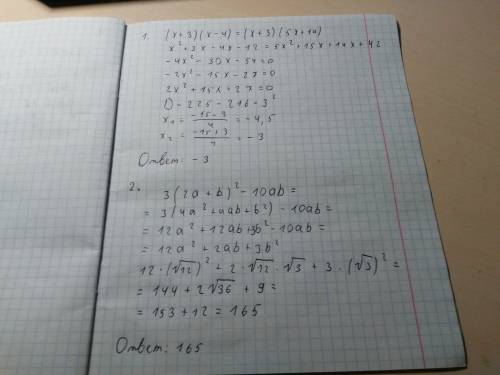 1. (x+3)(x-4)=(x+3)(5x+14)
x²+3x-4x-12=5x²+15x+14x+42
-4x²-30x-54=0
-2x²-15x-27=0
2x²+15x+27=0
D=225-216=3²
x₁ = (-15-3)/4 = -4,5
x₂ = (-15+3)/4 = -3
Ответ: -3
2. 3(2a+b)²-10ab=
=3(4a²+4ab+b²)-10ab=
=12a²+12ab+3b²-10ab=
=12a²+2ab+3b²
12·(√12)²+2·√12·√3+3·(√3)²=
=144+2√36+9=
=153+12=165
Ответ: 165